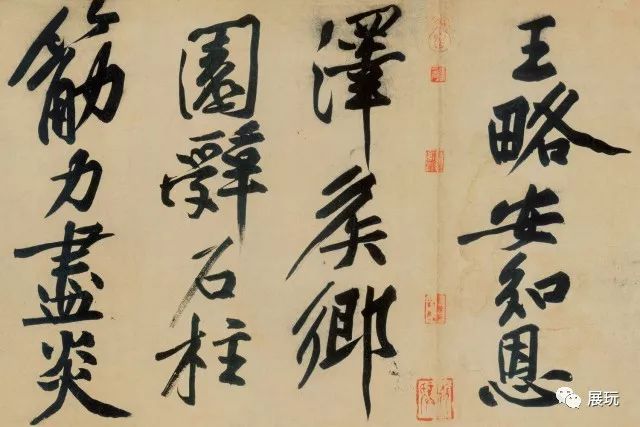 王略安知恩
澤侯鄉
園辭石柱
筋力盡炎
展玩